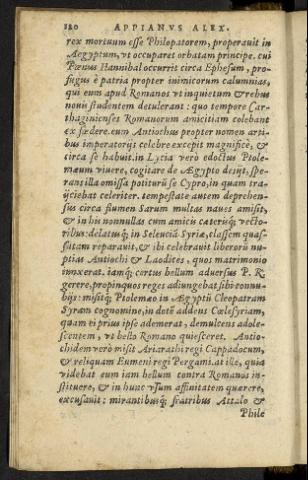 180 APPIANVS ALEX.
rex mortuum esse Philopatorem, properauit in
Aegyptum, vt occuparet orbatam principe. cui
Pœnus Hannibal occurrit circa Ephesum, pro-
fugus è patria propter inimicorum calumnias,
qui eum apud Romanos vt inquietum & rebus
nouis studentem detulerant: quo tempore Car-
thaginienses Romanorum amicitiam colebant
ex fœdere. eum Antiochus propter nomen arti-
bus imperatorijs celebre excepit magnificè, &
circa se habuit. in Lycia verò edoctus Ptole-
mæum viuere, cogitare de Aegypto desijt, spe-
rans illa omissa potiturũ se Cypro, in quam tra-
ijciebat celeriter. tempestate autem deprehen-
sus circa flumen Sarum multas naues amisit,
& in his nonnullas cum amicis cæterisq; vecto-
ribus: delatusq; in Seleuciã Syriæ, classem quas-
satam reparauit, & ibi celebrauit liberorũ nu-
ptias Antiochi & Laodices, quos matrimonio
iunxerat. iamq; certus bellum aduersus P. R.
gerere, propinquos reges adiungebat sibi connu-
bijs: misitq; Ptolemæo in Aegyptũ Cleopatram
Syran cognomine, in dotẽ addens Cœlesyriam,
quam ei prius ipse ademerat, demulcens adole-
scentem, vt bello Romano quiesceret. Antio-
chidem verò misit Ariarathi regi Cappadocum,
& reliquam Eumeni regi Pergami. at ille, quia
videbat eum iam bellum contra Romanos in-
stituere, & in hunc vsum affinitatem quærere,
excusauit: mirantibusq; fratribus Attalo &
Phile